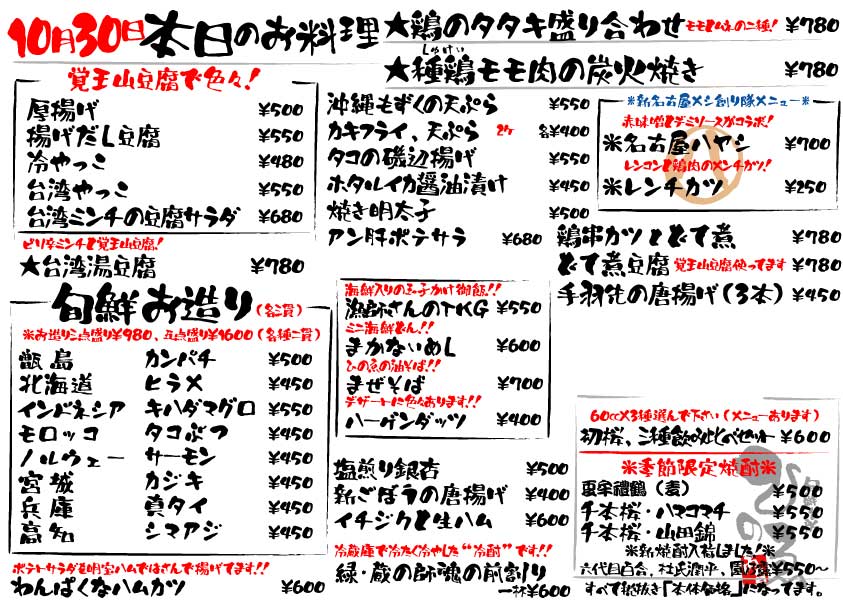 10月30日本日のお料理
★鶏のタタキ盛り合わせ モモとムネの二種! ¥780
しゅけい
★種鶏モモ肉の炭火焼き ¥780
覚王山豆腐で色々!
厚揚げ ¥500
揚げだし豆腐 ¥550
冷やっこ ¥480
台湾やっこ ¥550
台湾ミンチの豆腐サラダ ¥680
ピリ辛ミンチと覚王山豆腐!
★台湾湯豆腐 ¥780
旬鮮お造り(各二貫)
※お造り三点盛り¥980、五点盛り¥1600(各種一貫)
甑島 カンパチ ¥500
北海道 ヒラメ ¥450
インドネシア キハダマグロ ¥550
モロッコ タコぶつ ¥450
ノルウェー サーモン ¥450
宮城 カジキ ¥450
兵庫 真タイ ¥450
高知 シマアジ ¥450
ポテトサラダを明宝ハムではさんで揚げてます!!
わんぱくなハムカツ ¥600
沖縄もずくの天ぷら ¥550
カキフライ、天ぷら 2ケ 各¥400
タコの磯辺揚げ ¥550
ホタルイカ醤油漬け ¥450
焼き明太子 ¥500
アン肝ポテサラ ¥680
海鮮入りの玉子かけ御飯!!
漁師さんのTKG ¥550
ミニ海鮮どん!!
まかないめし ¥600
ひの魚の油そば!!
まぜそば ¥700
デザートに色々あります!!
ハーゲンダッツ ¥400
塩煎り銀杏 ¥500
新ごぼうの唐揚げ ¥400
イチジクと生ハム ¥600
冷蔵庫で冷たく冷やした“冷酎”です!!
緑・蔵の師魂の前割り
一杯¥600
※新名古屋メシ創り隊メニュー※
赤味噌とデミソースがコラボ!
※名古屋ハヤシ ¥700
レンコンと鶏肉のメンチカツ!
※レンチカツ ¥250
鶏串カツとどて煮 ¥780
どて煮豆腐 覚王山豆腐使ってます ¥780
手羽先の唐揚げ(3本) ¥450
60cc×3種選んで下さい(メニューあります)
初桜、三種飲みくらべセット ¥600
※季節限定焼酎※
亜宇禮鶴(麦) ¥500
千本桜・ハマコマチ ¥550
千本桜・山田錦 ¥550
※新焼酎入荷しました!※
六代目百合、杜氏潤平、 ¥550〜
すべて税抜き「本体価格」になってます。